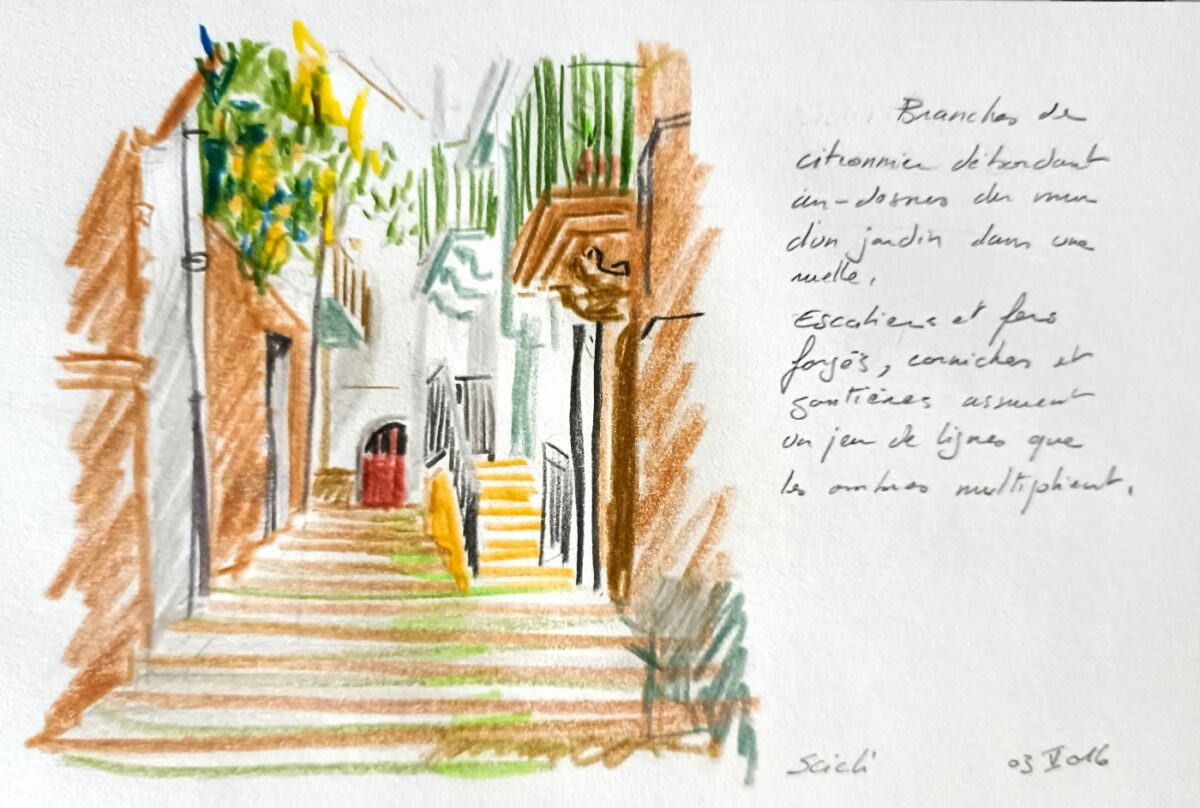 Branches de
citronnier débordant
au-dessus du mur
d'un jardin dans une
ruelle.
Escaliers et fers
forgés, corniches et
gouttières assurent
un jeu de lignes que
les ombres multiplient.
Scicli 03 V 016